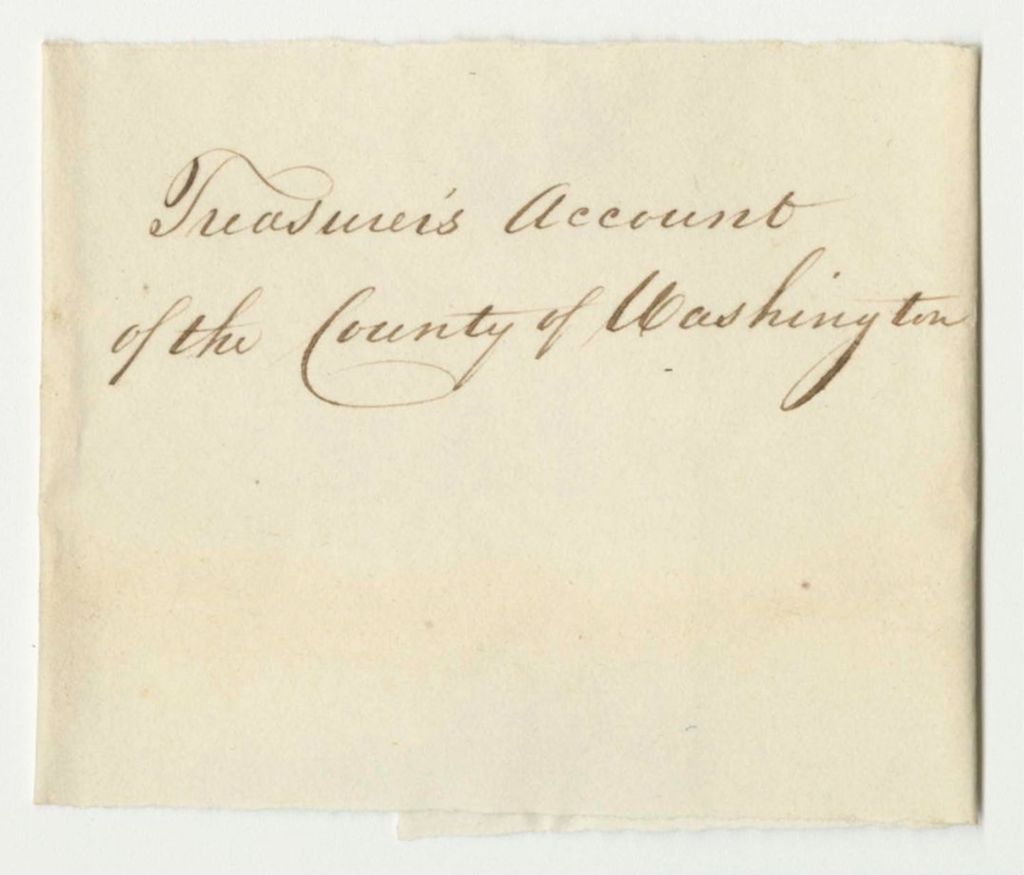 Treasurer's Account
of the County of Washington